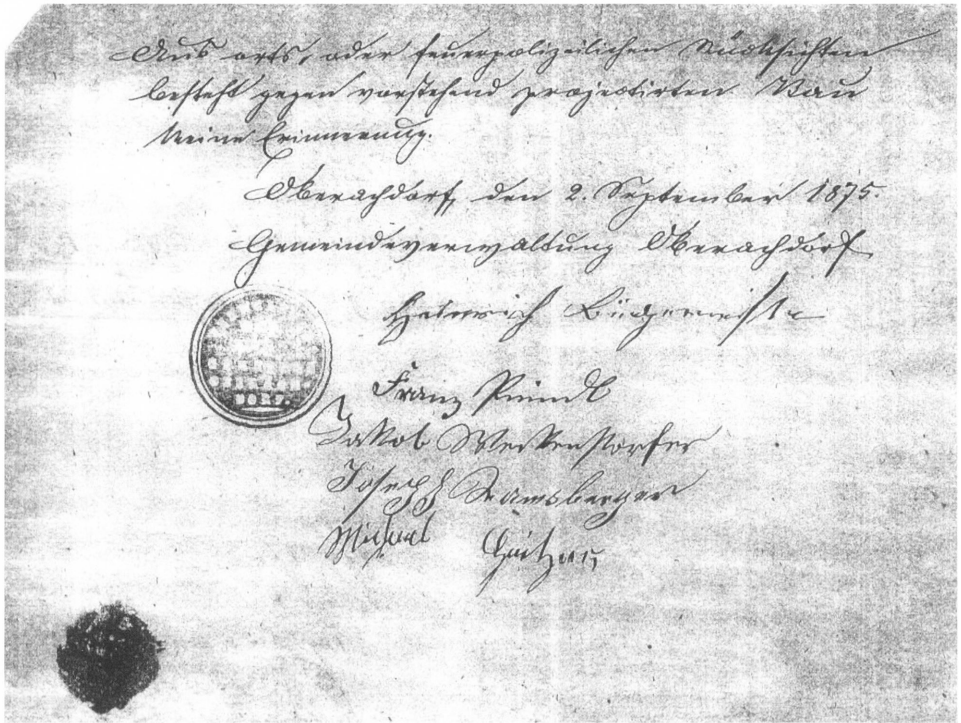 Aus orts, oder feuerpolizeilichen Rücksichten
besteht gegen vorstehend projectirten Bau
keine Erinnerung.
Oberachdorf, den 2. September 1875.
Gemeindeverwaltung Oberachdorf
Heinrich Bürgermeister
Franz
Jakob Weckenstorfer
Joseph Ramsberger
Michael